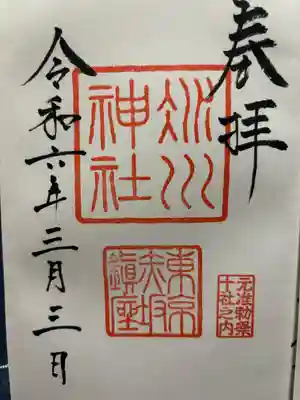 奉拝
冰川
神社
東京
赤坂
鎭座
元准勅祭
十社之内
令和六年三月三日